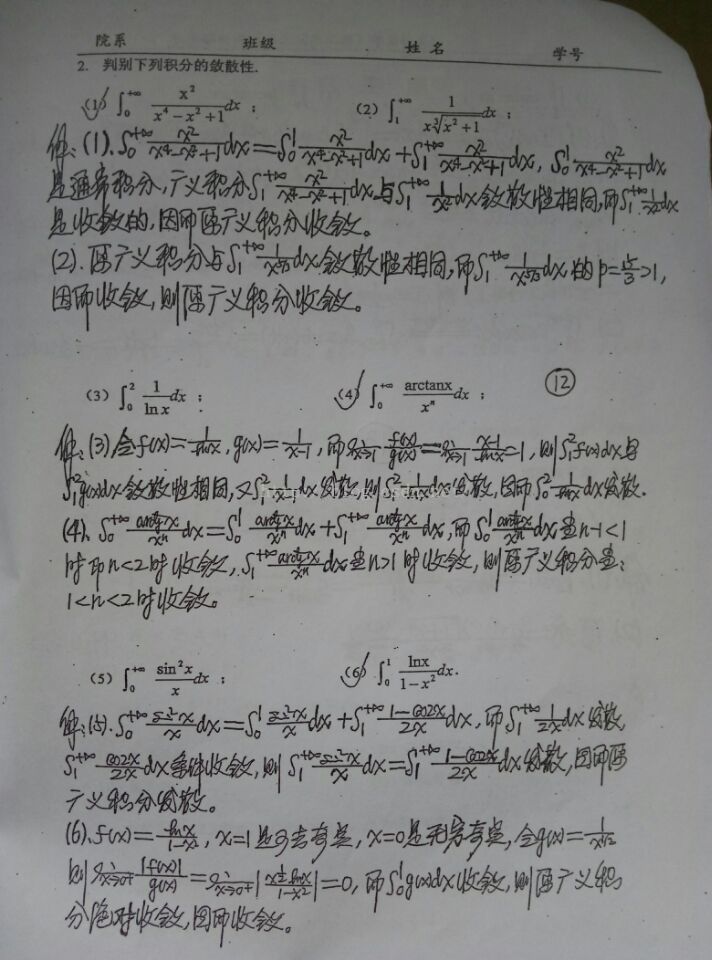 院系 班级 姓名 学号
2. 判别下列积分的敛散性.
(1) ∫₀^{+∞} x²/(x⁴-x²+1) dx ; (2) ∫₁^{+∞} 1/(x∛(x²+1)) dx ;
解:(1). ∫₀^{+∞} x²/(x⁴-x²+1) dx = ∫₀¹ x²/(x⁴-x²+1) dx + ∫₁^{+∞} x²/(x⁴-x²+1) dx, ∫₀¹ x²/(x⁴-x²+1) dx
是通常积分,广义积分∫₁^{+∞} x²/(x⁴-x²+1) dx 与∫₁^{+∞} 1/x² dx 敛散性相同,而∫₁^{+∞} 1/x² dx
是收敛的,因而原广义积分收敛。
(2). 原广义积分与∫₁^{+∞} 1/x^{5/3} dx 敛散性相同,而∫₁^{+∞} 1/x^{5/3} dx 的 p=5/3>1,
因而收敛,则原广义积分收敛。
(3) ∫₀² 1/ln x dx ; (4) ∫₀^{+∞} arctanx/xⁿ dx ; ⑫
解:(3)令f(x)=1/lnx, g(x)=1/(x-1), 而lim_{x→1} f(x)/g(x)=lim_{x→1} (x-1)/lnx=1, 则∫₁²f(x)dx与
∫₁²g(x)dx敛散性相同,又∫₁² 1/(x-1) dx发散,则∫₁² 1/lnx dx发散,因而∫₀² 1/lnx dx发散.
(4). ∫₀^{+∞} arctanx/xⁿ dx = ∫₀¹ arctanx/xⁿ dx + ∫₁^{+∞} arctanx/xⁿ dx, 而∫₀¹ arctanx/xⁿ dx 当n-1<1
时即n<2时收敛, ∫₁^{+∞} arctanx/xⁿ dx 当n>1时收敛,则原广义积分当:
1<n<2时收敛。
(5) ∫₀^{+∞} sin²x/x dx ; (6) ∫₀¹ lnx/(1-x²) dx.
解:(5). ∫₀^{+∞} sin²x/x dx = ∫₀¹ sin²x/x dx + ∫₁^{+∞} (1-cos2x)/2x dx, 而∫₁^{+∞} 1/2x dx 发散,
∫₁^{+∞} cos2x/2x dx条件收敛,则∫₁^{+∞} sin²x/x dx = ∫₁^{+∞} (1-cos2x)/2x dx发散,因而原
广义积分发散。
(6). f(x)=lnx/(1-x²), x=1是可去奇点, x=0是无穷奇点, 令g(x)=1/x^{1/2}
则lim_{x→0+} |f(x)|/g(x)=lim_{x→0+} |x^{1/2}lnx/(1-x²)|=0, 而∫₀¹g(x)dx收敛,则原广义积
分绝对收敛,因而收敛。